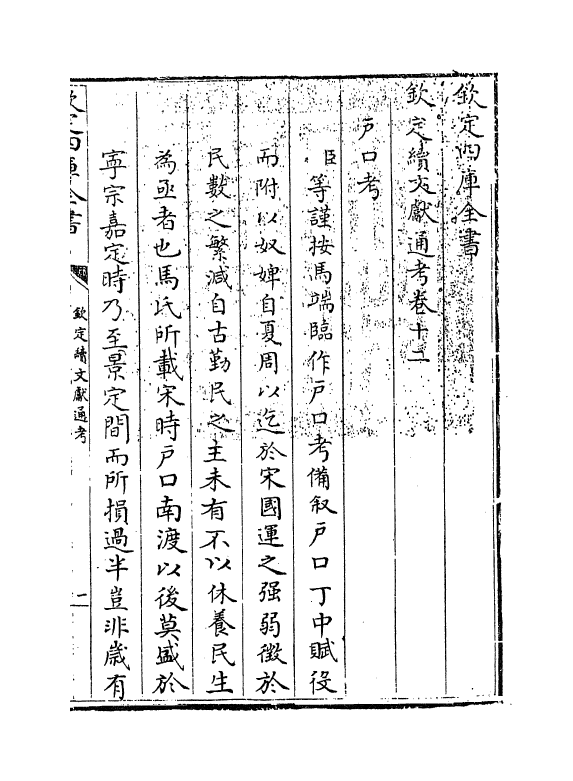 欽定四庫全書
欽定續文獻通考卷十二
戶口考
臣等謹按馬端臨作戶口考備叙戶口丁中賦役
而附以奴婢自夏周以迄於宋國運之强弱徴於
民數之繁減自古勤民之主未有不以休養民生
為亟者也馬氏所載宋時戶口南渡以後莫盛於
寜宗嘉定時乃至景定間而所損過半豈非歳有
欽定四庫全書
欽定續文獻通考
一